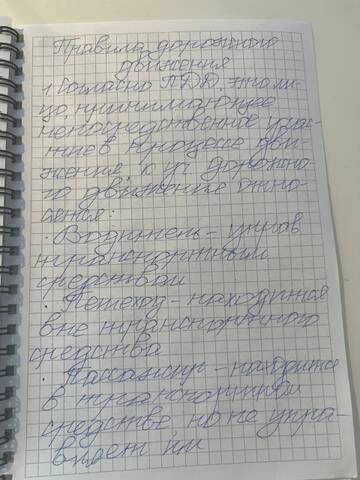 Правила дорожного
движения
1 Согласно ПДД, это ли-
цо, принимающее
непосредственное учас-
тие в процессе дви-
жения, к уч. дорожно-
го движения отно-
сятся:
· Водитель - управ
транспортным
средством
· Пешеход - находится
вне транспортного
средства
· Пассажир - находится
в транспортном
средстве, но не упра-
вляет им